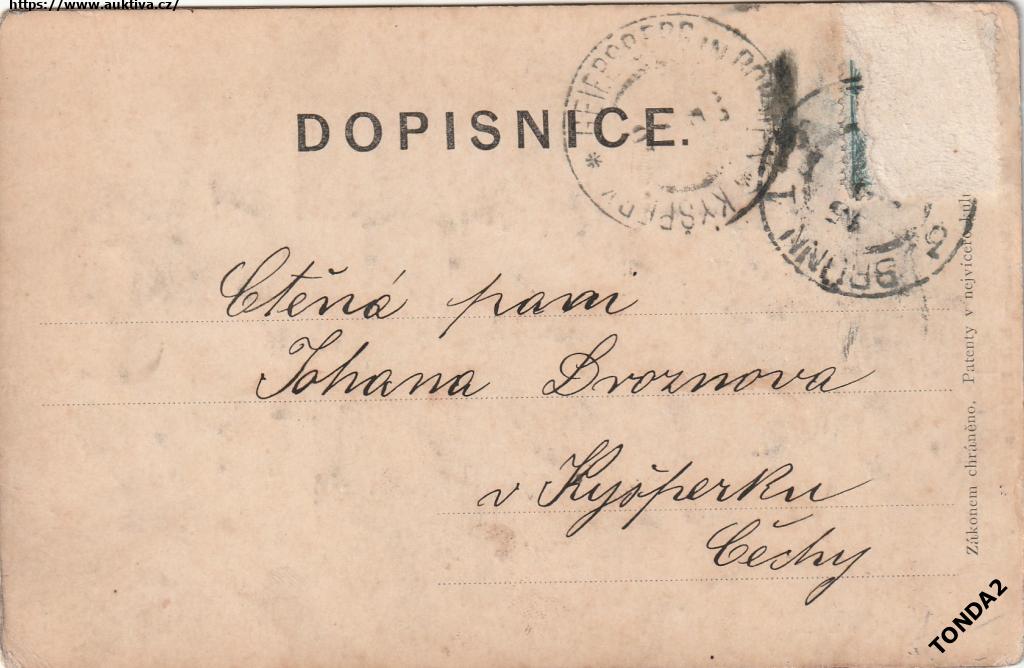 https://www.auktiva.cz/
DOPISNICE.
GEIERSBERG IN BÖHMEN
* KYŠPERK *
BRÜNN
Ctěná pani
Johana Droznova
v Kyšperku
Čechy
Zákonem chráněno. Patenty v nejvíce
TONDA2